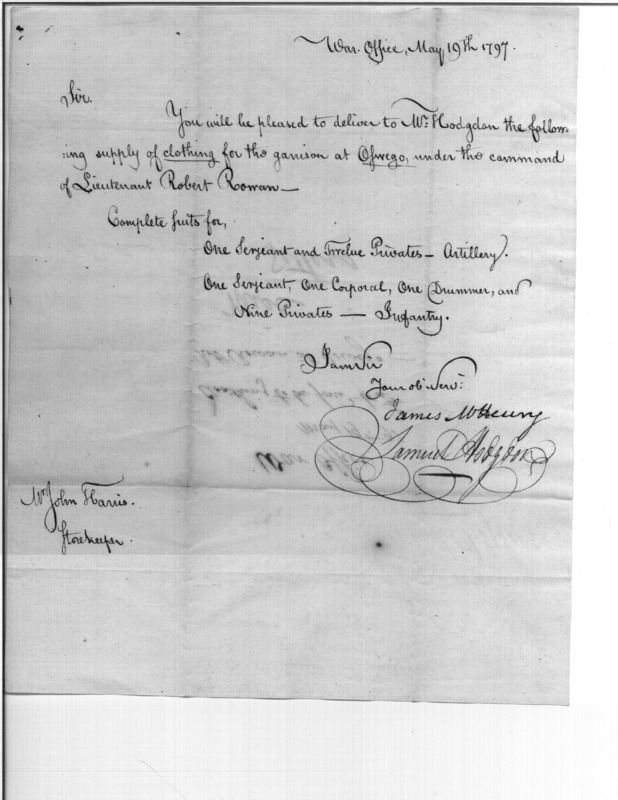 War Office, May 19th 1797.
Sir.
You will be pleased to deliver to Mr. Hodgdon the follow=
=ing supply of clothing for the garrison at Oswego, under the command
of Lieutenant Robert Rowan—
Complete suits for,
One Serjeant and Twelve Privates— Artillery.
One Serjeant, One Corporal, One Drummer, and
Nine Privates — Infantry.
I am Sir
Your ob. Serv.
James McHenry
Samuel Hodgdon
Mr. John Harris.
Storekeeper.